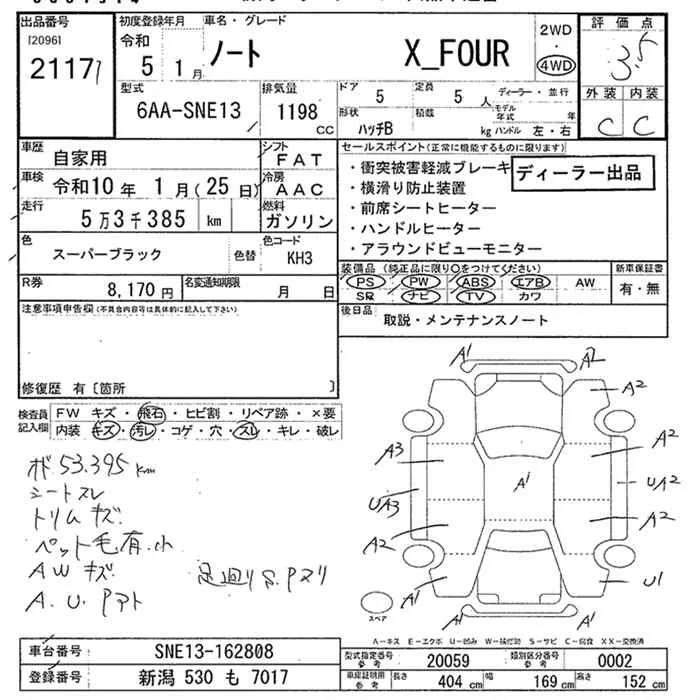 出品番号
[2096]
2117
初度登録年月
令和
5 1月
車名・グレード
ノート X_FOUR
2WD
・
4WD
評価点
3.5
外装 内装
C C
型式
6AA-SNE13
排気量
1198 cc
ドア 5
定員 5 人
ディーラー・並行
モデル年式 年
形状 ハッチB
積載 kg
ハンドル 左・右
車歴 自家用
シフト FAT
車検 令和10年 1月(25日)
冷房 AAC
走行 5万3千385 km
燃料 ガソリン
色 スーパーブラック 色替
色コード KH3
R券 8,170円
名変通知期限 月 日
セールスポイント(正常に機能するものに限ります)
・衝突被害軽減ブレーキ
ディーラー出品
・横滑り防止装置
・前席シートヒーター
・ハンドルヒーター
・アラウンドビューモニター
装備品 (純正品に限り○をつけてください)
PS PW ABS エアB AW
SR ナビ TV カワ
新車保証書
有・無
後日品 取説・メンテナンスノート
注意事項申告欄(不具合内容等は具体的に記入して下さい)
修復歴 有〔箇所 〕
検査員記入欄
FW キズ・飛石・ヒビ割・リペア跡・×要
内装 キズ・汚レ・コゲ・穴・スレ・キレ・破レ
53.395 km
シートスレ
トリムキズ
ペット毛有.小
AWキズ
足廻りS.Pヌリ
A.U.Pアト
A1 A2
A2
A3 A2
A1
UA3 UA2
A2 A2
A1 U1
A1 A1
スペア
A-キズ E-エクボ U-凹み W-補修跡 S-サビ C-腐食 XX-交換済
車台番号 SNE13-162808
登録番号 新潟 530 も 7017
型式指定番号 参考 20059
類別区分番号 参考 0002
車庫証明用 参考 長さ 404 cm 幅 169 cm 高さ 152 cm